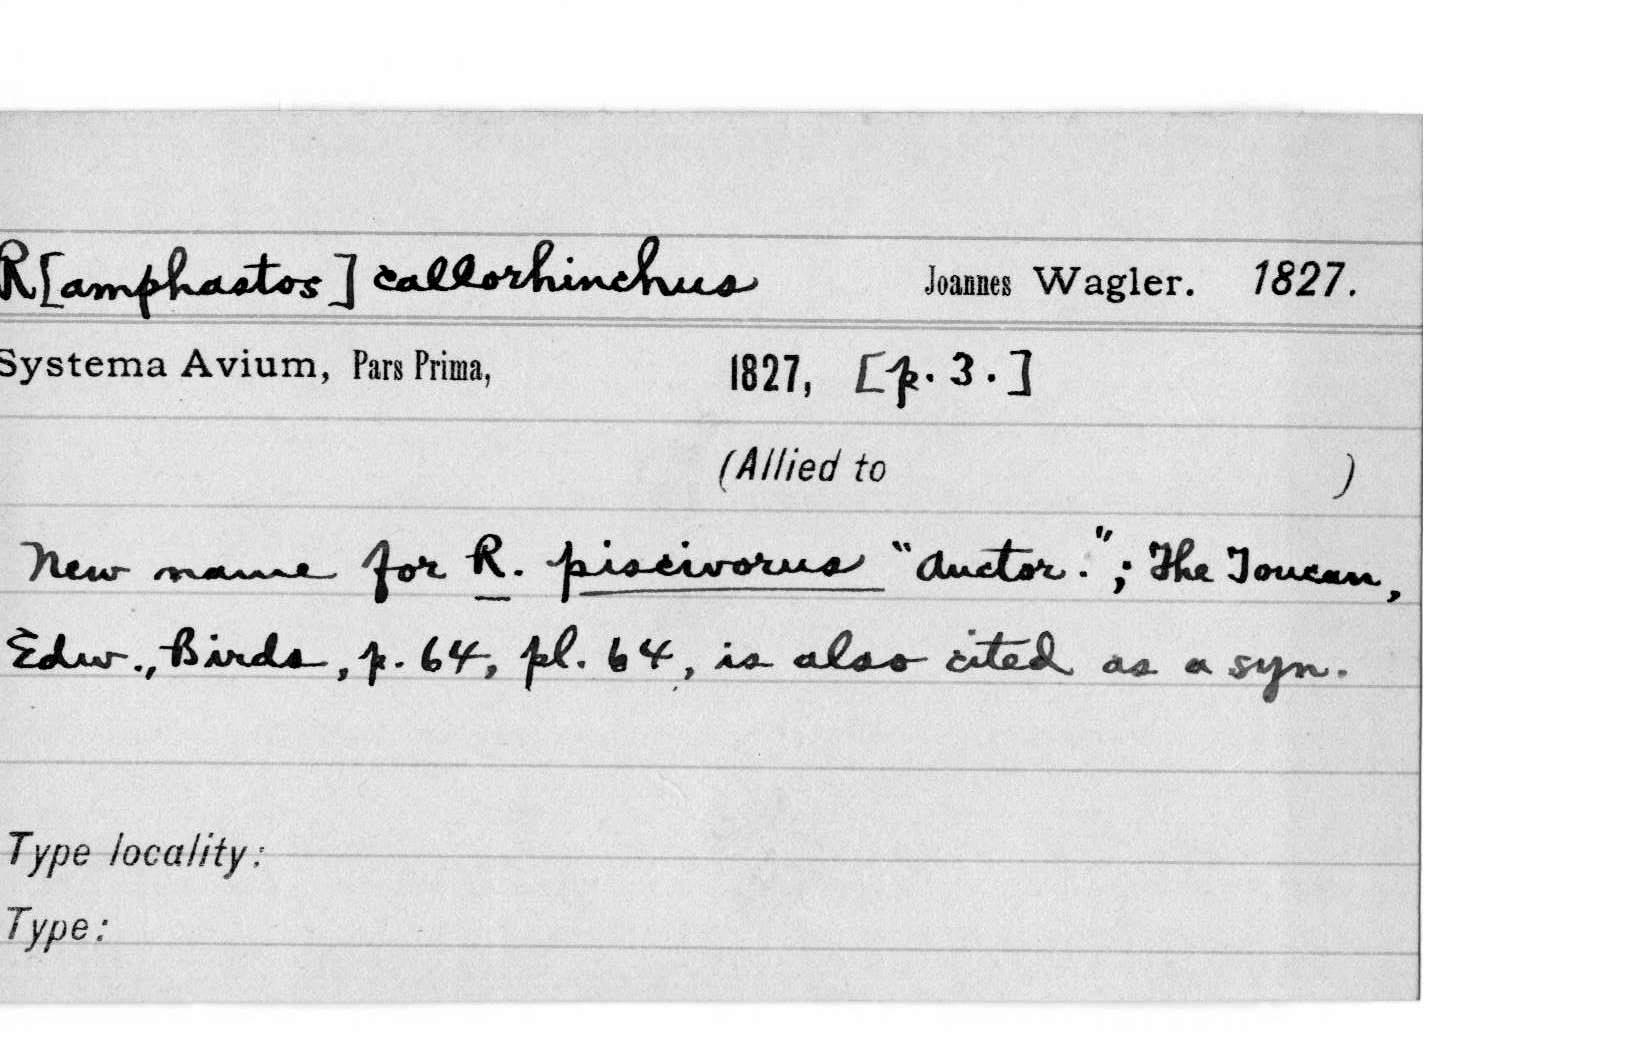 R[amphastos] callorhinchus Joannes Wagler. 1827.
Systema Avium, Pars Prima, 1827, [p. 3.]
(Allied to )
New name for R. piscivorus "Auctor."; The Toucan,
Edw., Birds, p. 64, pl. 64, is also cited as a syn.
Type locality:
Type: